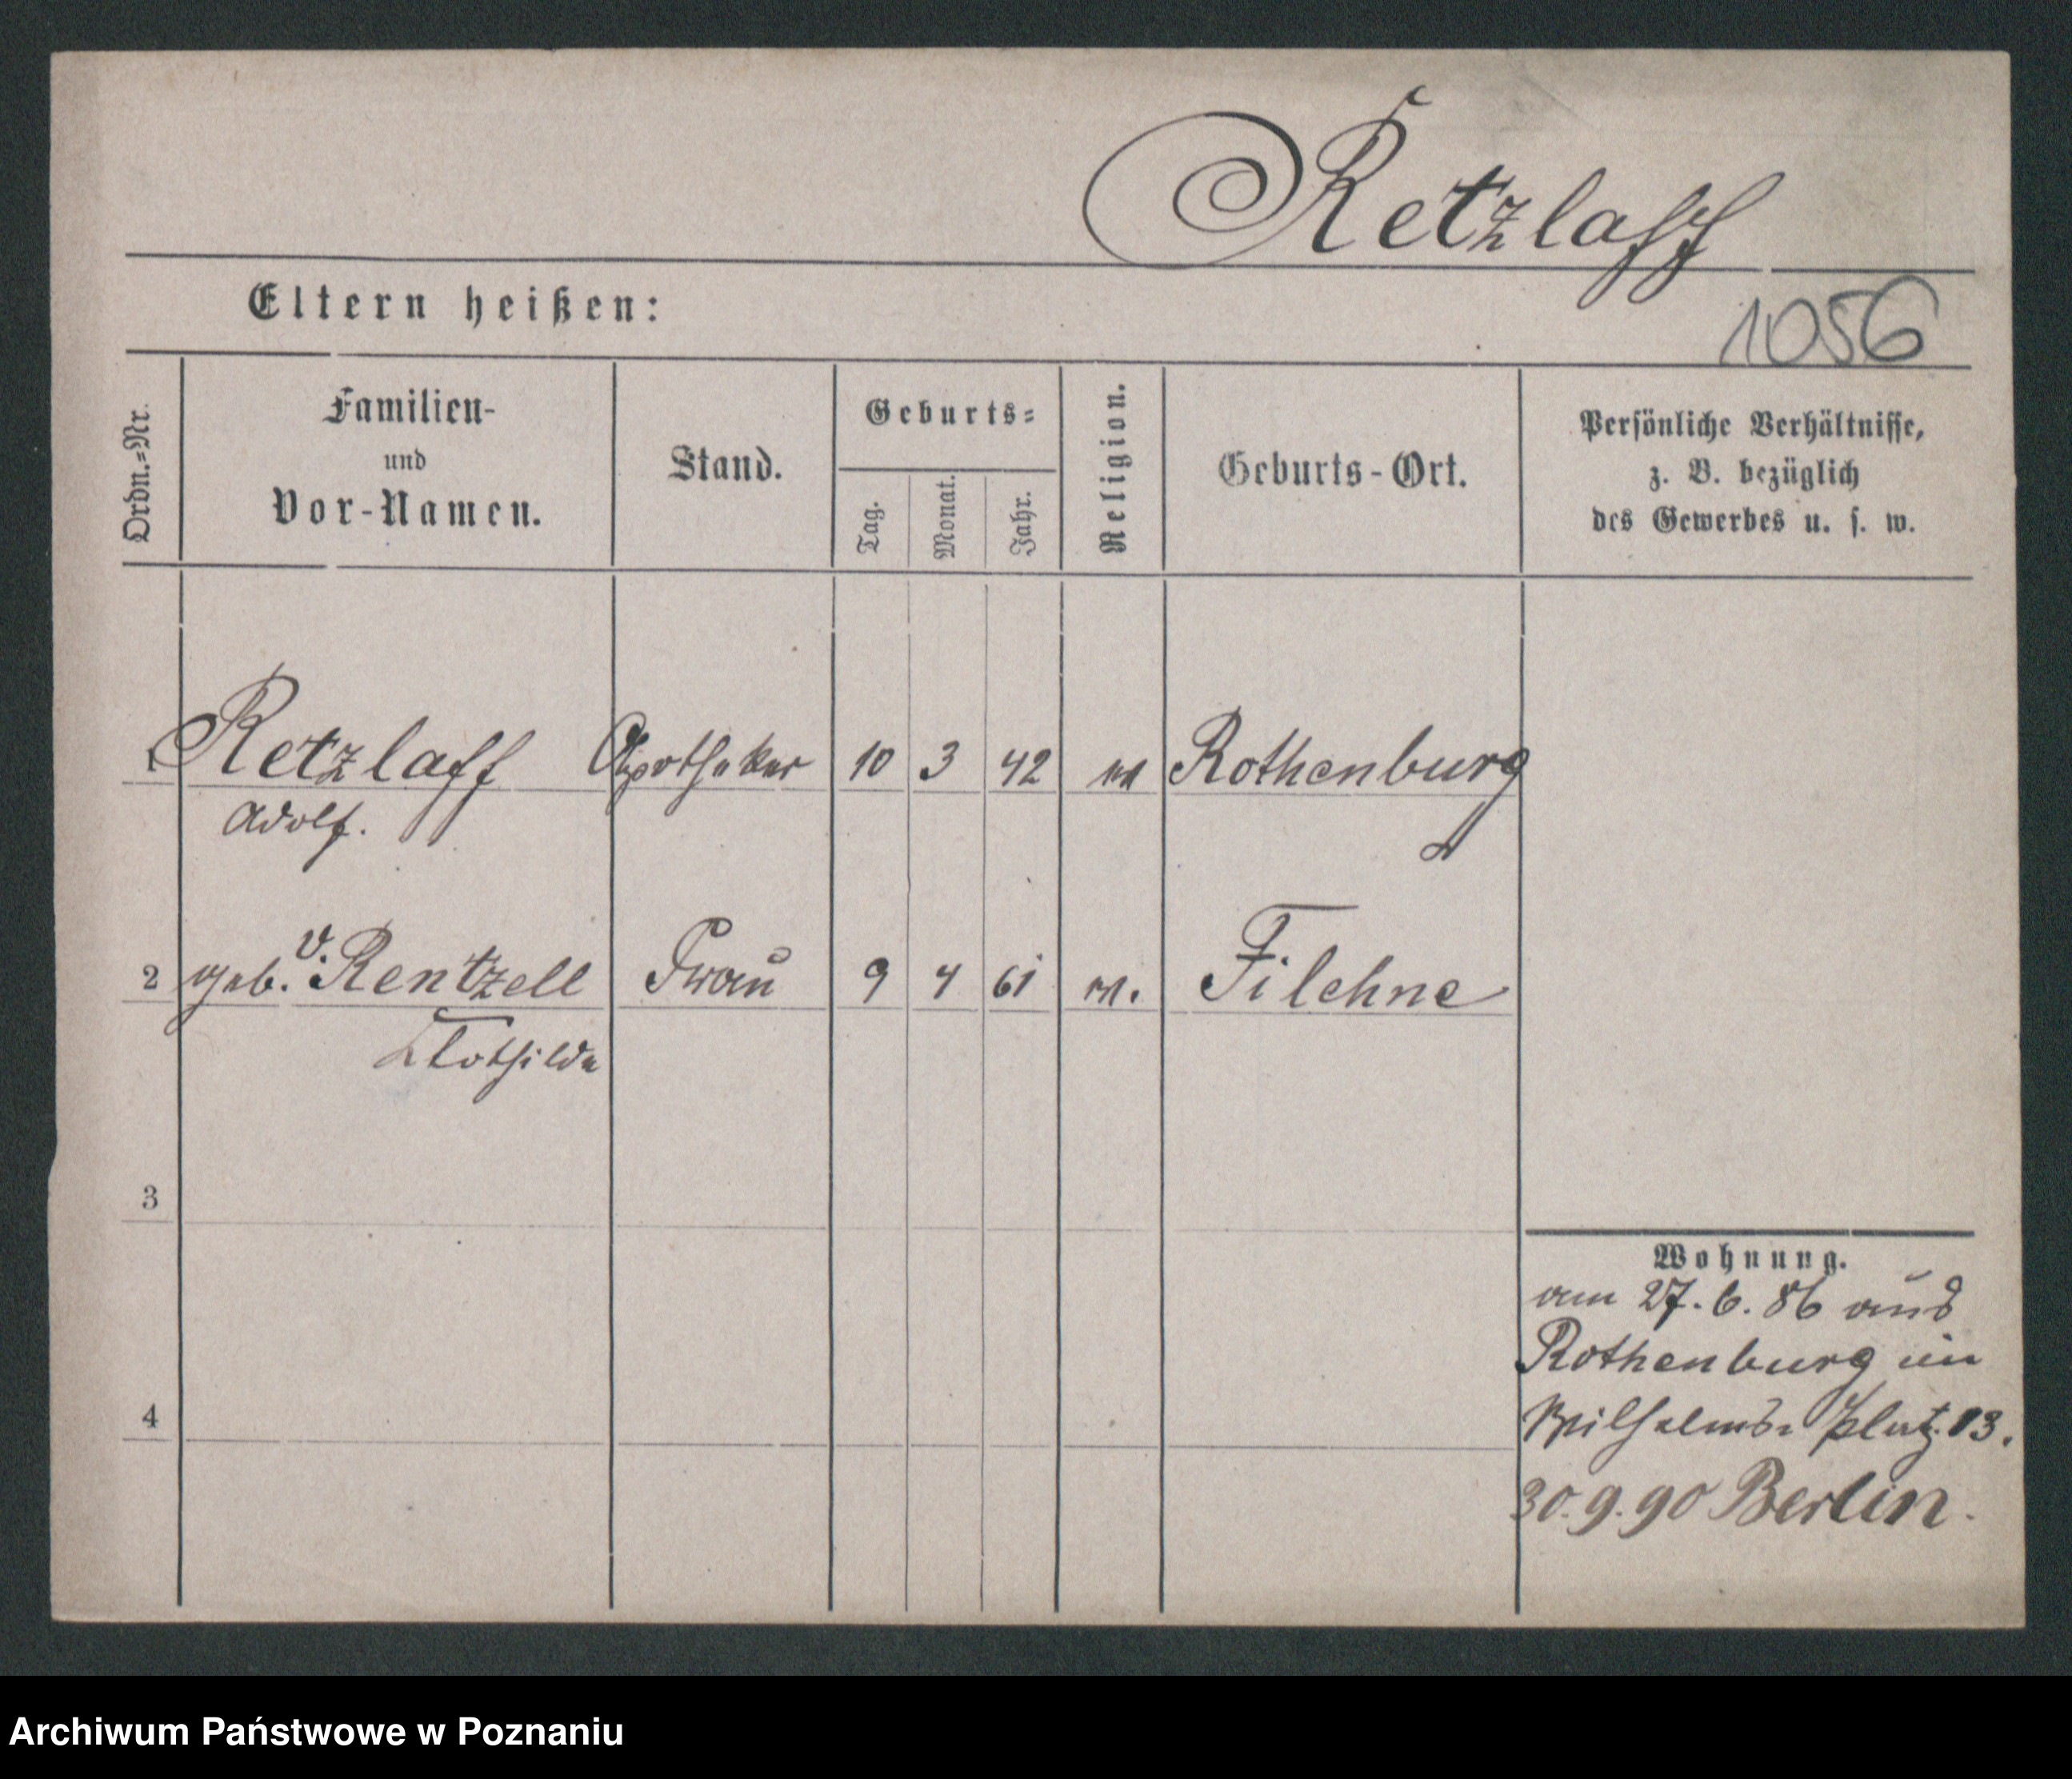 Retzlaff
Eltern heißen:
1056
Ordn.=Nr.
Familien-
und
Vor-Namen.
Stand.
Geburts=
Tag.
Monat.
Jahr.
Religion.
Geburts-Ort.
Persönliche Verhältnisse,
z. B. bezüglich
des Gewerbes u. s. w.
1 Retzlaff Apotheker 10 3 42 Rothenburg
Adolf.
2 geb. v. Rentzell Frau 9 4 61 Filehne
Klothilde
3
Wohnung.
am 27. 6. 86 aus
Rothenburg in
4
Wilhelms- platz 13.
30. 9. 90 Berlin.
Archiwum Państwowe w Poznaniu